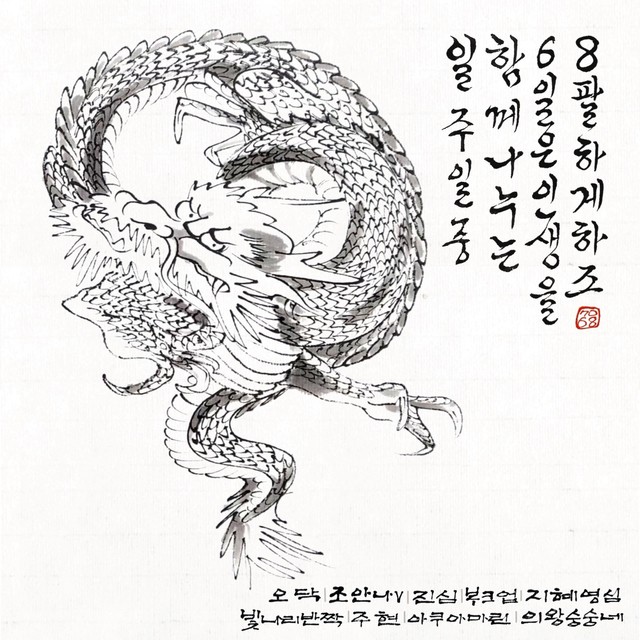 일 주 일 중
함께나누는
6일은인생을
8팔하게하조
오닥|초안나v|진심|부크업|지혜영심
빛나리반짝|주현|아쿠아마린|의왕숭숭네